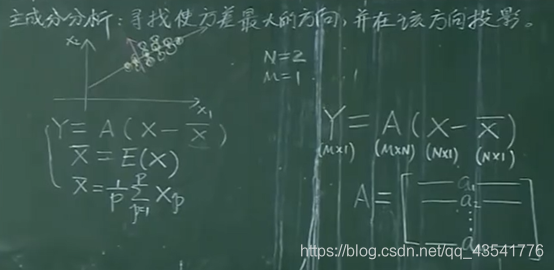 主成分分析：寻找使方差最大的方向，并在该方向投影。
x₂
x₁
N=2
M=1
Y = A(X-X̅)
X̅ = E(X)
X̅ = 1/P ∑ᴾₚ₌₁ Xₚ
Y = A(X-X̅)
(M×1) (M×N) (N×1) (N×1)
A = [—a₁—
—a₂—
⋮
—a —]
https://blog.csdn.net/qq_43541776